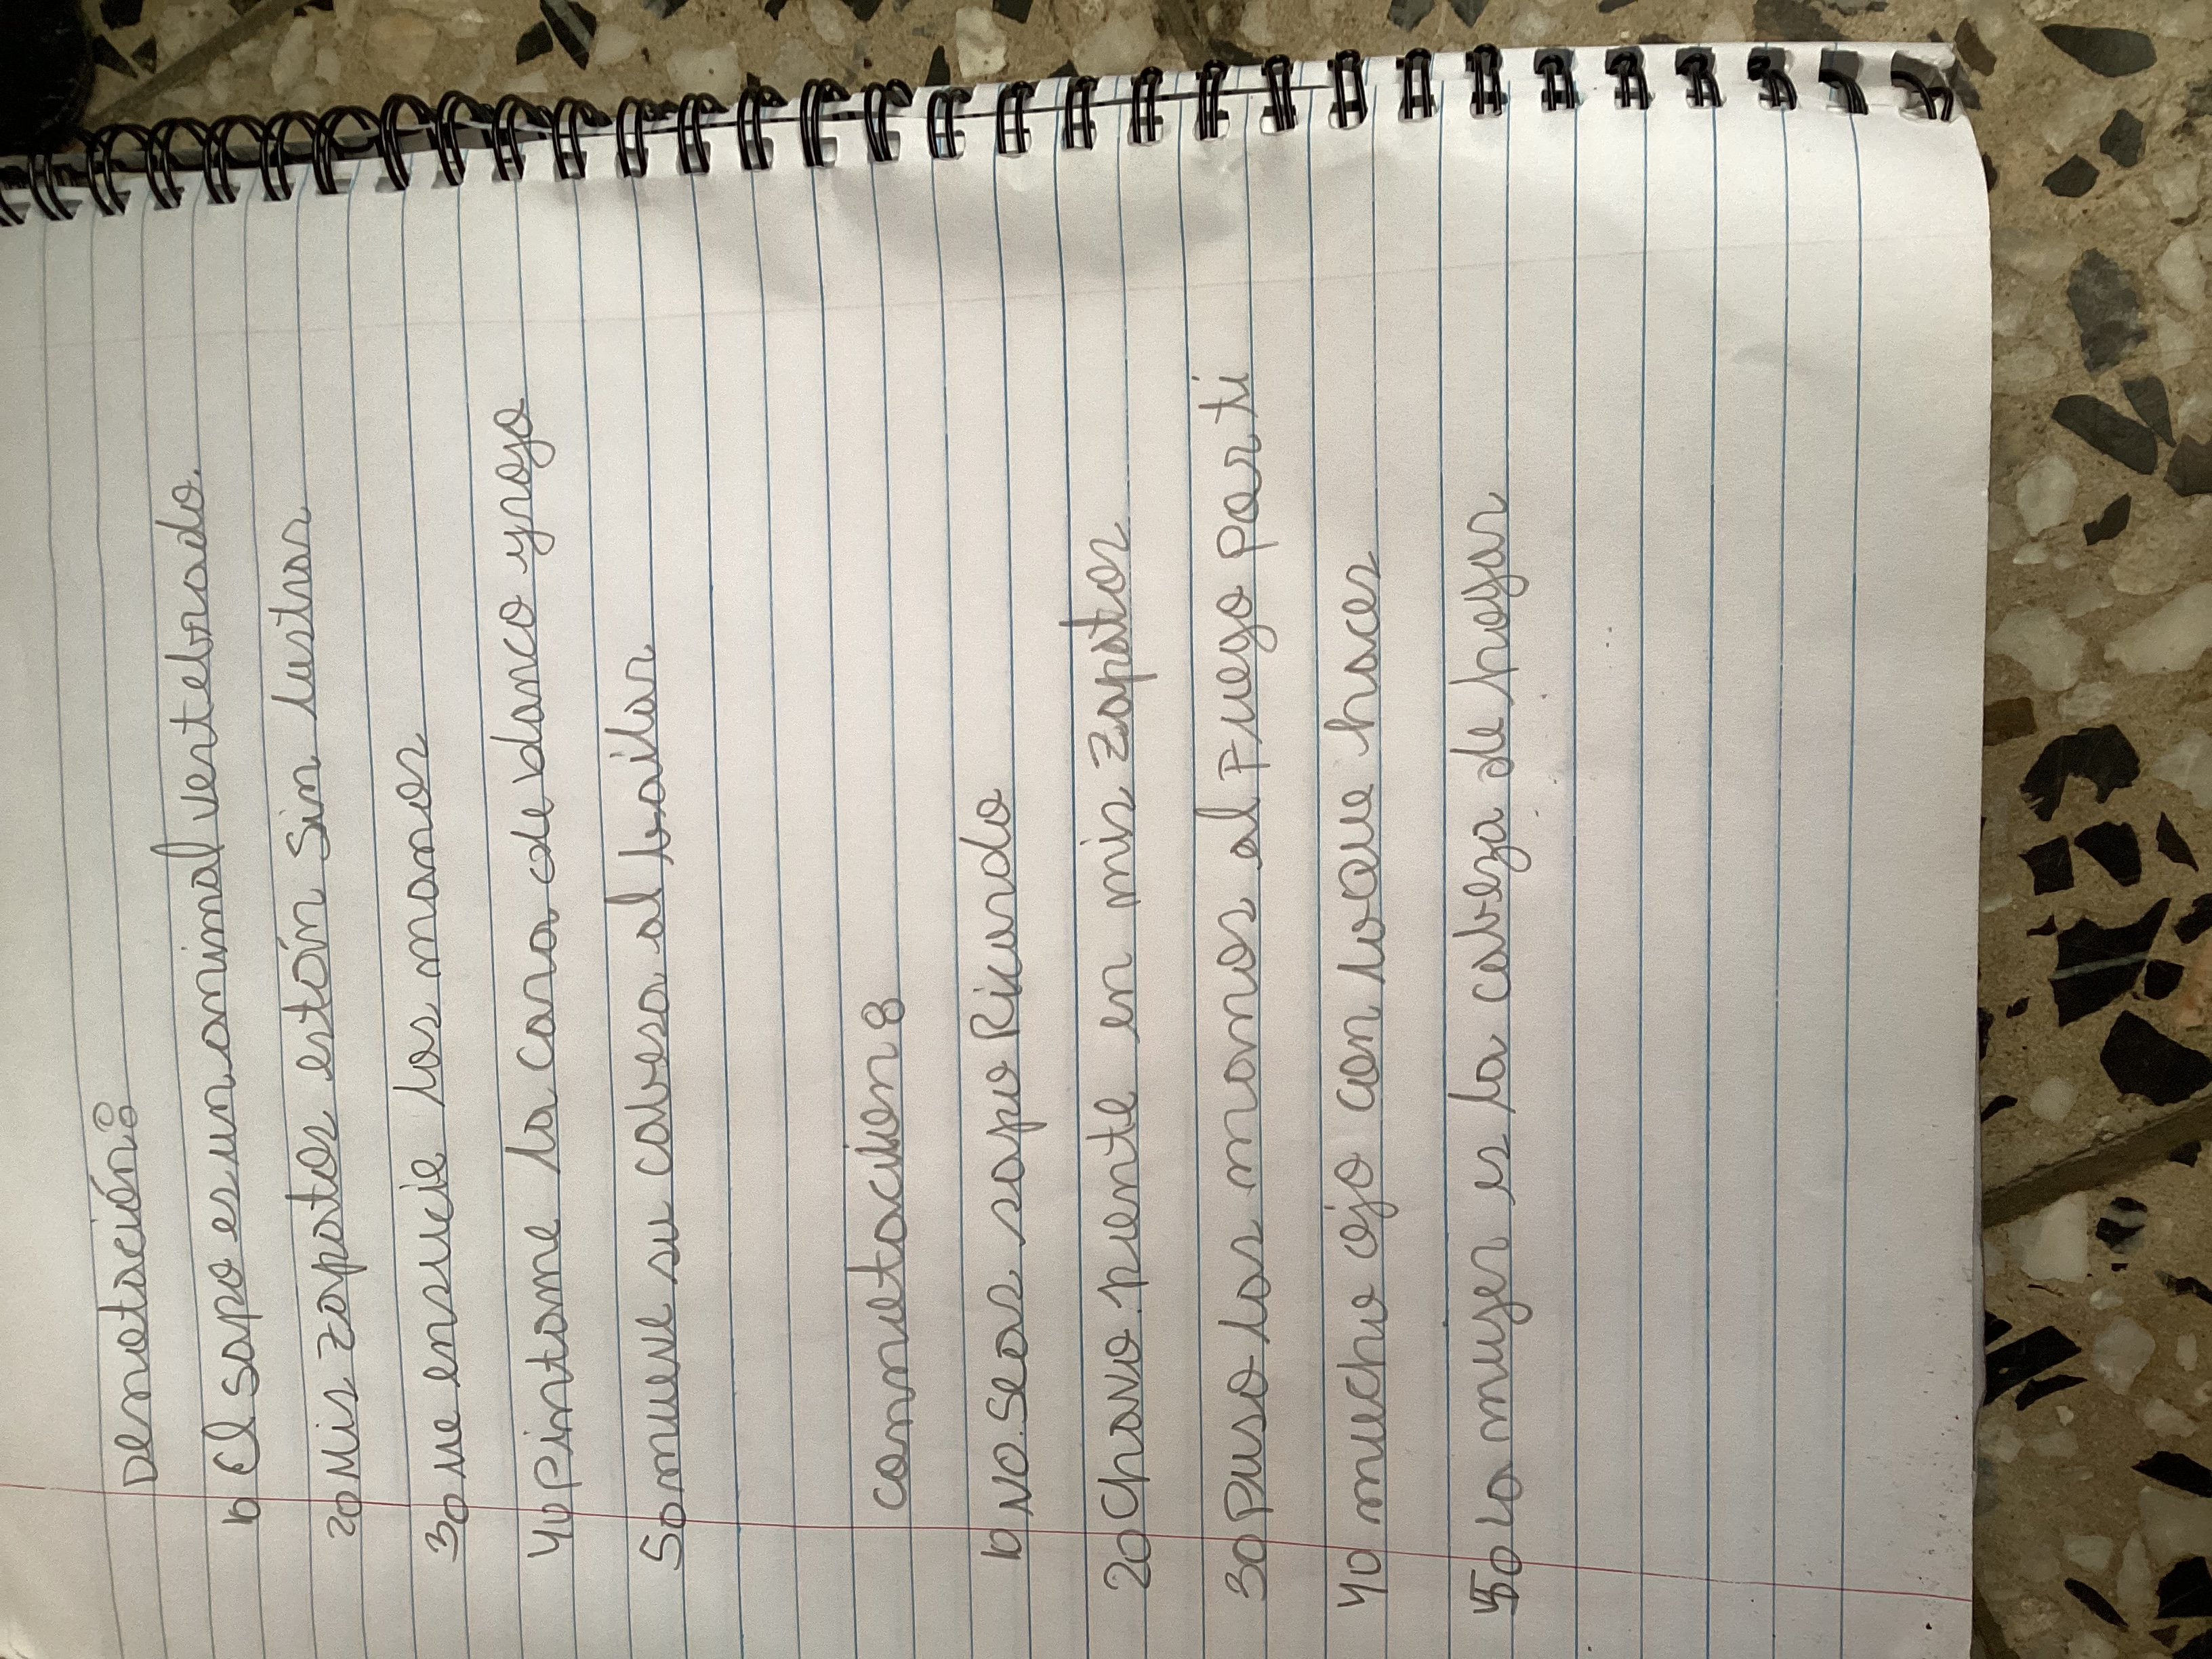 Denotación:
1o El sapo es un animal vertebrado.
2o Mis zapatos están sin lustrar
3o me ensucie las manos
4o Pintame la cara de blanco y rojo
5o mueve su cabesa al bailar
connotacion:
1o No seas sapo Ricardo
2o Chavo ponte en mis zapatos
3o Puso las manos al Fuego por ti
4o mucho ojo con lo que haces
5o La mujer es la cabeza de hogar